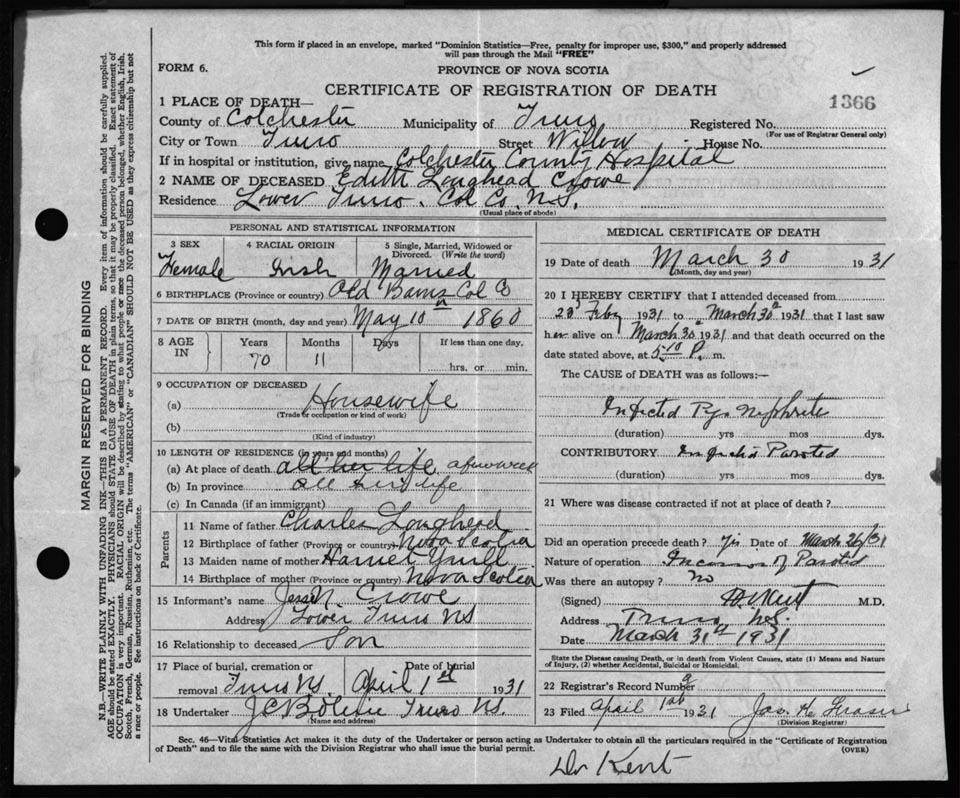 This form if placed in an envelope, marked "Dominion Statistics—Free, penalty for improper use, $300," and properly addressed
will pass through the Mail "FREE"
FORM 6.
PROVINCE OF NOVA SCOTIA
CERTIFICATE OF REGISTRATION OF DEATH
1366
1 PLACE OF DEATH—
County of Colchester Municipality of Truro Registered No.
(For use of Registrar General only)
City or Town Truro Street Willow House No.
If in hospital or institution, give name Colchester County Hospital
2 NAME OF DECEASED Edith Longhead Crowe
Residence Lower Truro. Col Co. N.S.
(Usual place of abode)
PERSONAL AND STATISTICAL INFORMATION
3 SEX 4 RACIAL ORIGIN 5 Single, Married, Widowed or
Divorced. (Write the word)
Female Irish Married
6 BIRTHPLACE (Province or country) Old Barns Col Co
7 DATE OF BIRTH (month, day and year) May 10th 1860
8 AGE IN Years Months Days If less than one day.
70 11 hrs. or min.
9 OCCUPATION OF DECEASED
(a) Housewife
(Trade or occupation or kind of work)
(b)
(Kind of industry)
10 LENGTH OF RESIDENCE (in years and months)
(a) At place of death all her life a few week
(b) In province all her life
(c) In Canada (if an immigrant)
Parents
11 Name of father Charles Longhead
12 Birthplace of father (Province or country) Nova Scotia
13 Maiden name of mother Harriet Yuill
14 Birthplace of mother (Province or country) Nova Scotia
15 Informant's name Jesse N. Crowe
Address Lower Truro NS
16 Relationship to deceased Son
17 Place of burial, cremation or Date of burial
removal Truro NS. April 1st 1931
18 Undertaker Truro NS.
(Name and address)
MEDICAL CERTIFICATE OF DEATH
19 Date of death March 30 1931
(Month, day and year)
20 I HEREBY CERTIFY that I attended deceased from
23 Feby 1931 to March 30 1931 that I last saw
her alive on March 30 1931 and that death occurred on the
date stated above, at 5:10 P. m.
The CAUSE of DEATH was as follows:—
Infected
(duration) yrs mos dys.
CONTRIBUTORY Infected Parotid
(duration) yrs mos dys.
21 Where was disease contracted if not at place of death?
Did an operation precede death? yes Date of March 26/31
Nature of operation of Parotid
Was there an autopsy? No
(Signed) Kent M.D.
Address Truro N.S.
Date March 31st 1931
State the Disease causing Death, or in death from Violent Causes, state (1) Means and Nature
of Injury, (2) whether Accidental, Suicidal or Homicidal.
22 Registrar's Record Number
23 Filed April 1st 1931 Jas. H Fraser
(Division Registrar)
Sec. 46—Vital Statistics Act makes it the duty of the Undertaker or person acting as Undertaker to obtain all the particulars required in the "Certificate of Registration
of Death" and to file the same with the Division Registrar who shall issue the burial permit.
(OVER)
Dr Kent
MARGIN RESERVED FOR BINDING
N.B.—WRITE PLAINLY WITH UNFADING INK—THIS IS A PERMANENT RECORD. Every item of information should be carefully supplied.
AGE should be stated EXACTLY. PHYSICIANS should STATE CAUSE OF DEATH in plain terms, so that it may be properly classified. Exact statement of
OCCUPATION is very important. RACIAL ORIGIN will be described by stating to what people or race the deceased person belonged, whether English, Irish,
Scotch, French, German, Russian, Ruthenian, etc. The terms "AMERICAN" or "CANADIAN" SHOULD NOT BE USED as they express citizenship but not
a race or people. See instructions on back of Certificate.